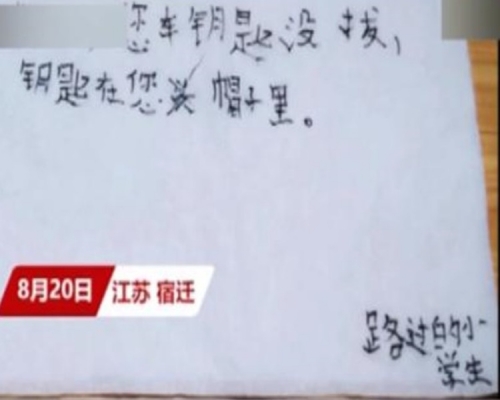 您车钥匙没拔,
钥匙在您头帽子里。
8月20日 江苏 宿迁
路过的小
学生